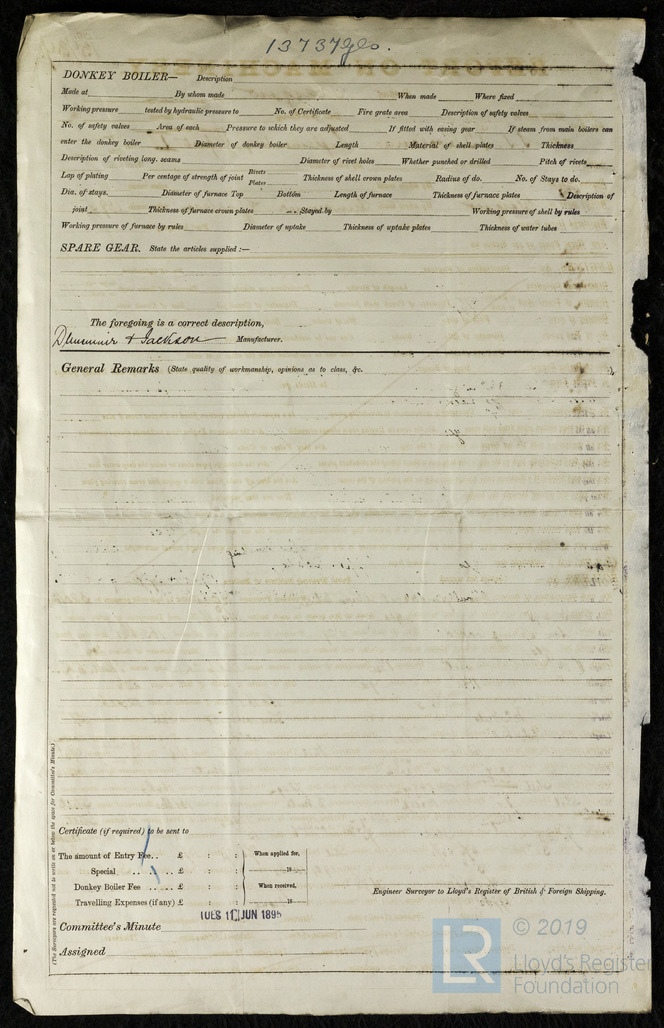 13737 Gls.
DONKEY BOILER— Description
Made at By whom made When made Where fixed
Working pressure tested by hydraulic pressure to No. of Certificate Fire grate area Description of safety valves
No. of safety valves Area of each Pressure to which they are adjusted If fitted with easing gear If steam from main boilers can
enter the donkey boiler Diameter of donkey boiler Length Material of shell plates Thickness
Description of riveting long. seams Diameter of rivet holes Whether punched or drilled Pitch of rivets
Lap of plating Per centage of strength of joint Rivets Plates Thickness of shell crown plates Radius of do. No. of Stays to do.
Dia. of stays. Diameter of furnace Top Bottom Length of furnace Thickness of furnace plates Description of
joint Thickness of furnace crown plates Stayed by Working pressure of shell by rules
Working pressure of furnace by rules Diameter of uptake Thickness of uptake plates Thickness of water tubes
SPARE GEAR. State the articles supplied :—
The foregoing is a correct description,
& Jackson Manufacturer.
General Remarks (State quality of workmanship, opinions as to class, &c.
(The Surveyors are requested not to write on or below the space for Committee's Minute.)
Certificate (if required) to be sent to
The amount of Entry Fee. . £ : : When applied for,
Special . . . . . £ : : 18
Donkey Boiler Fee . . . . . £ : : When received,
Travelling Expenses (if any) £ : : 18
Engineer Surveyor to Lloyd's Register of British & Foreign Shipping.
TUES 11 JUN 1895
Committee's Minute
Assigned
LR © 2019
Lloyd's Register
Foundation